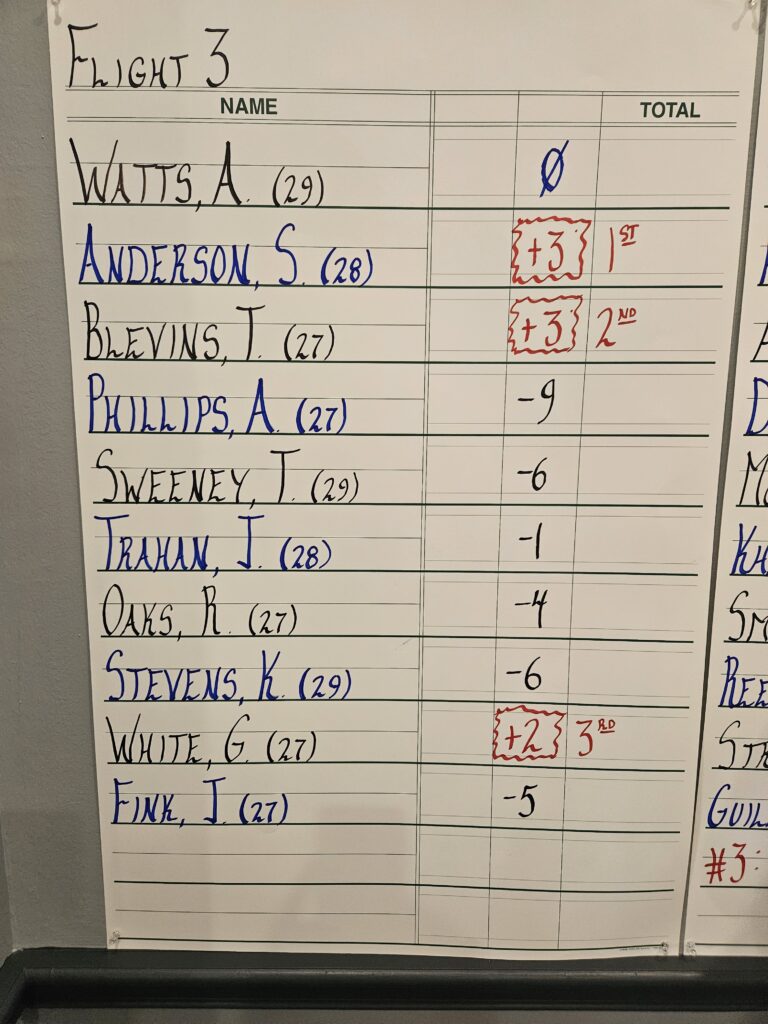 FLIGHT 3
NAME TOTAL
WATTS, A. (29) 0
ANDERSON, S. (28) +3 1ST
BLEVINS, T. (27) +3 2ND
PHILLIPS, A. (27) -9
SWEENEY, T. (29) -6
TRAHAN, J. (28) -1
OAKS, R. (27) -4
STEVENS, K. (29) -6
WHITE, G. (27) +2 3RD
FINK, J. (27) -5
#3: